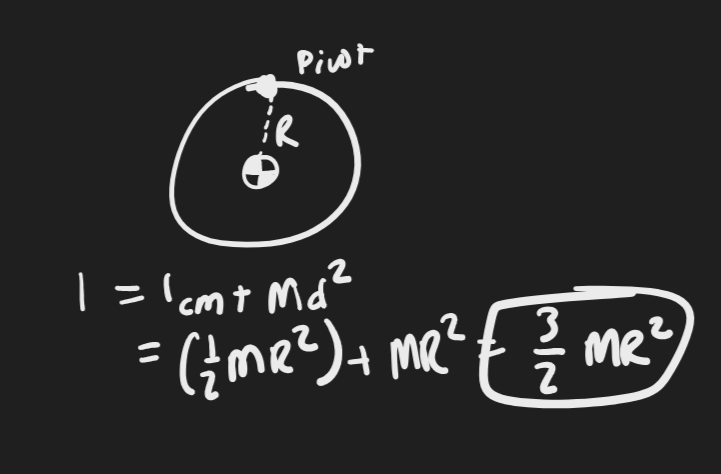 Pivot
R
I = Icm + Md²
= (½MR²) + MR² = 3/2 MR²